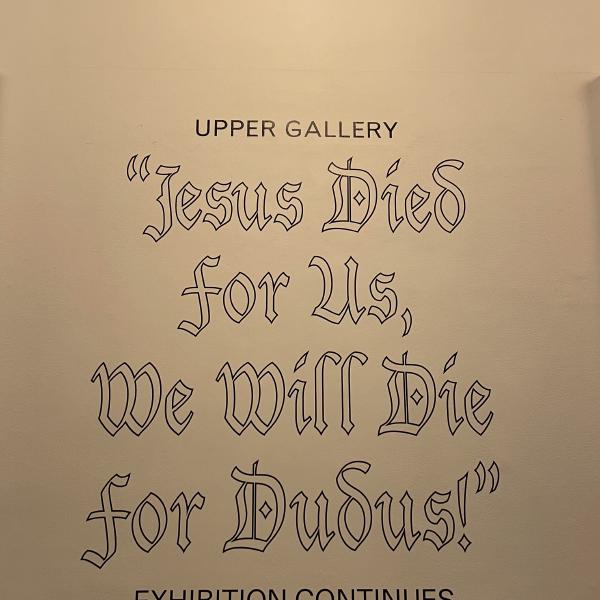 UPPER GALLERY
“Jesus Died
for Us,
We Will Die
for Dudus!”
EXHIBITION CONTINUES